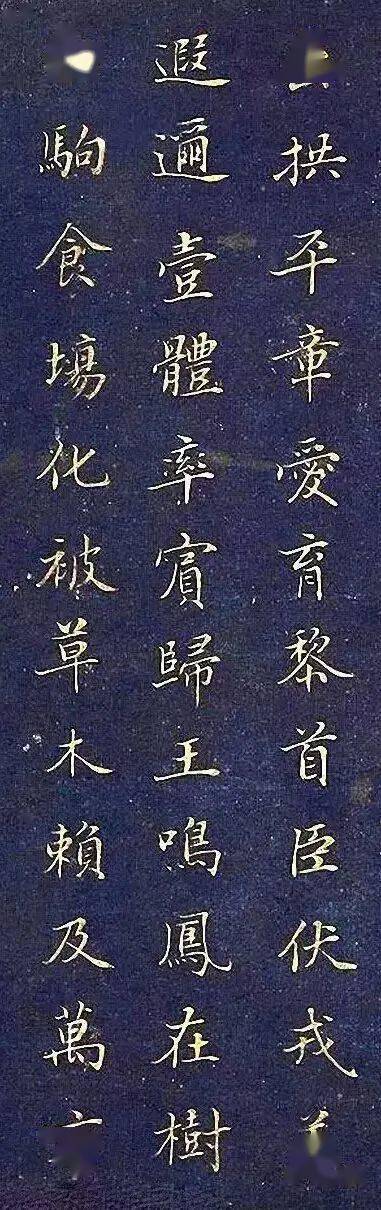 拱平章愛育黎首臣伏戎
遐邇壹體率賓歸王鳴鳳在樹
駒食場化被草木賴及萬